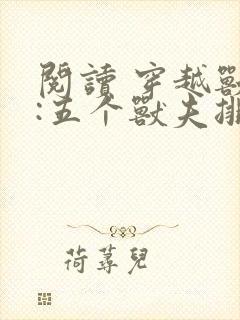 閱讀 穿越獸
:五个獸夫排
荷蕁兒